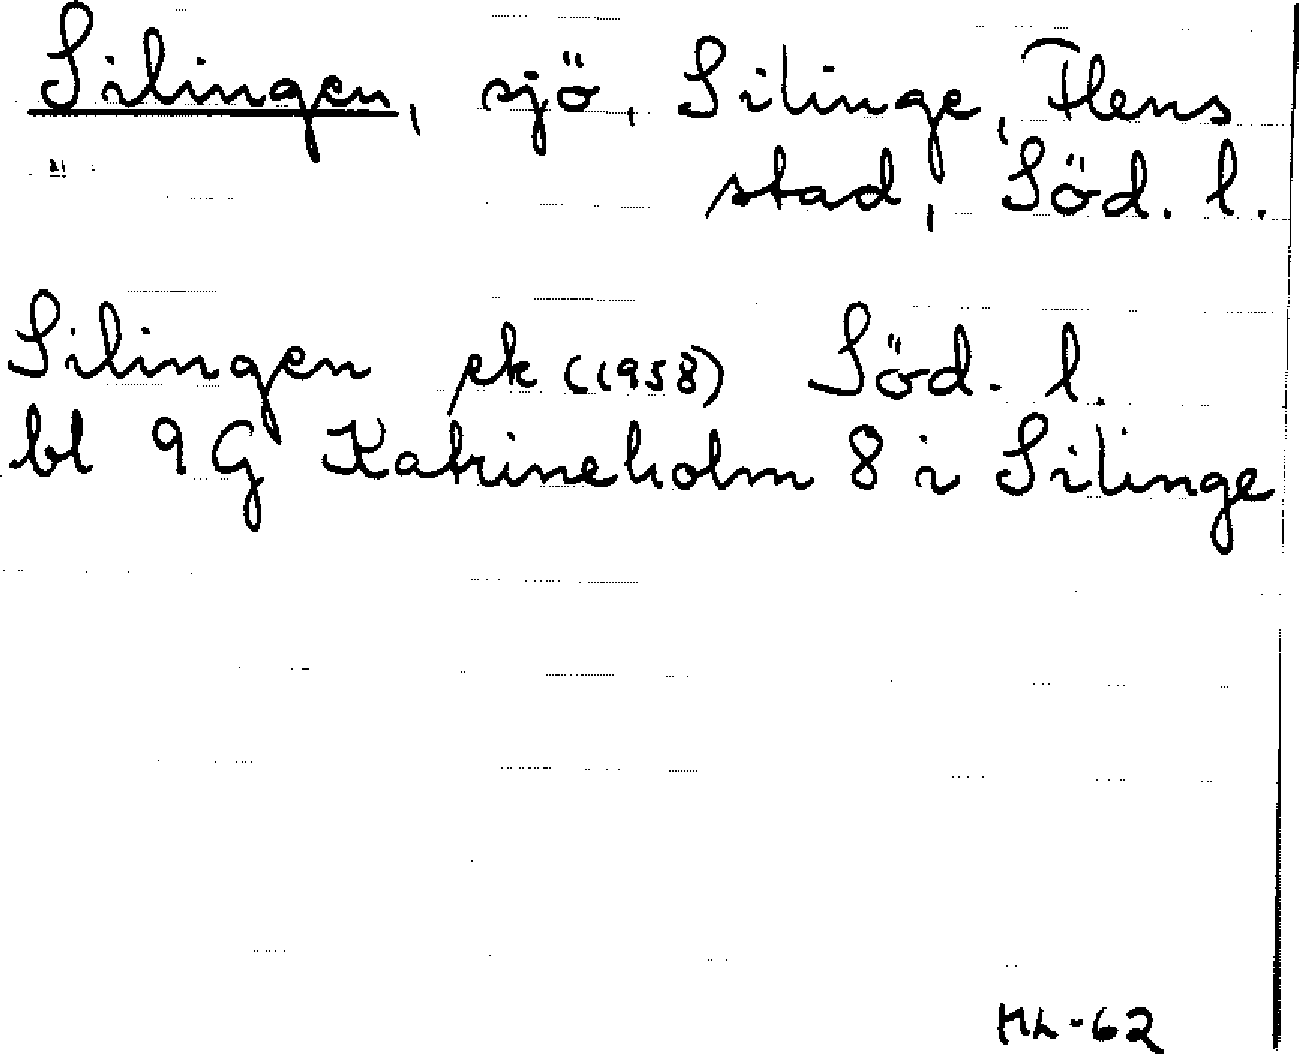 Silingen, sjö, Silinge, Flens
stad, Söd. l.
Silingen ek (1958) Söd. l.
bl 9G Katrineholm 8 i Silinge
ML-62